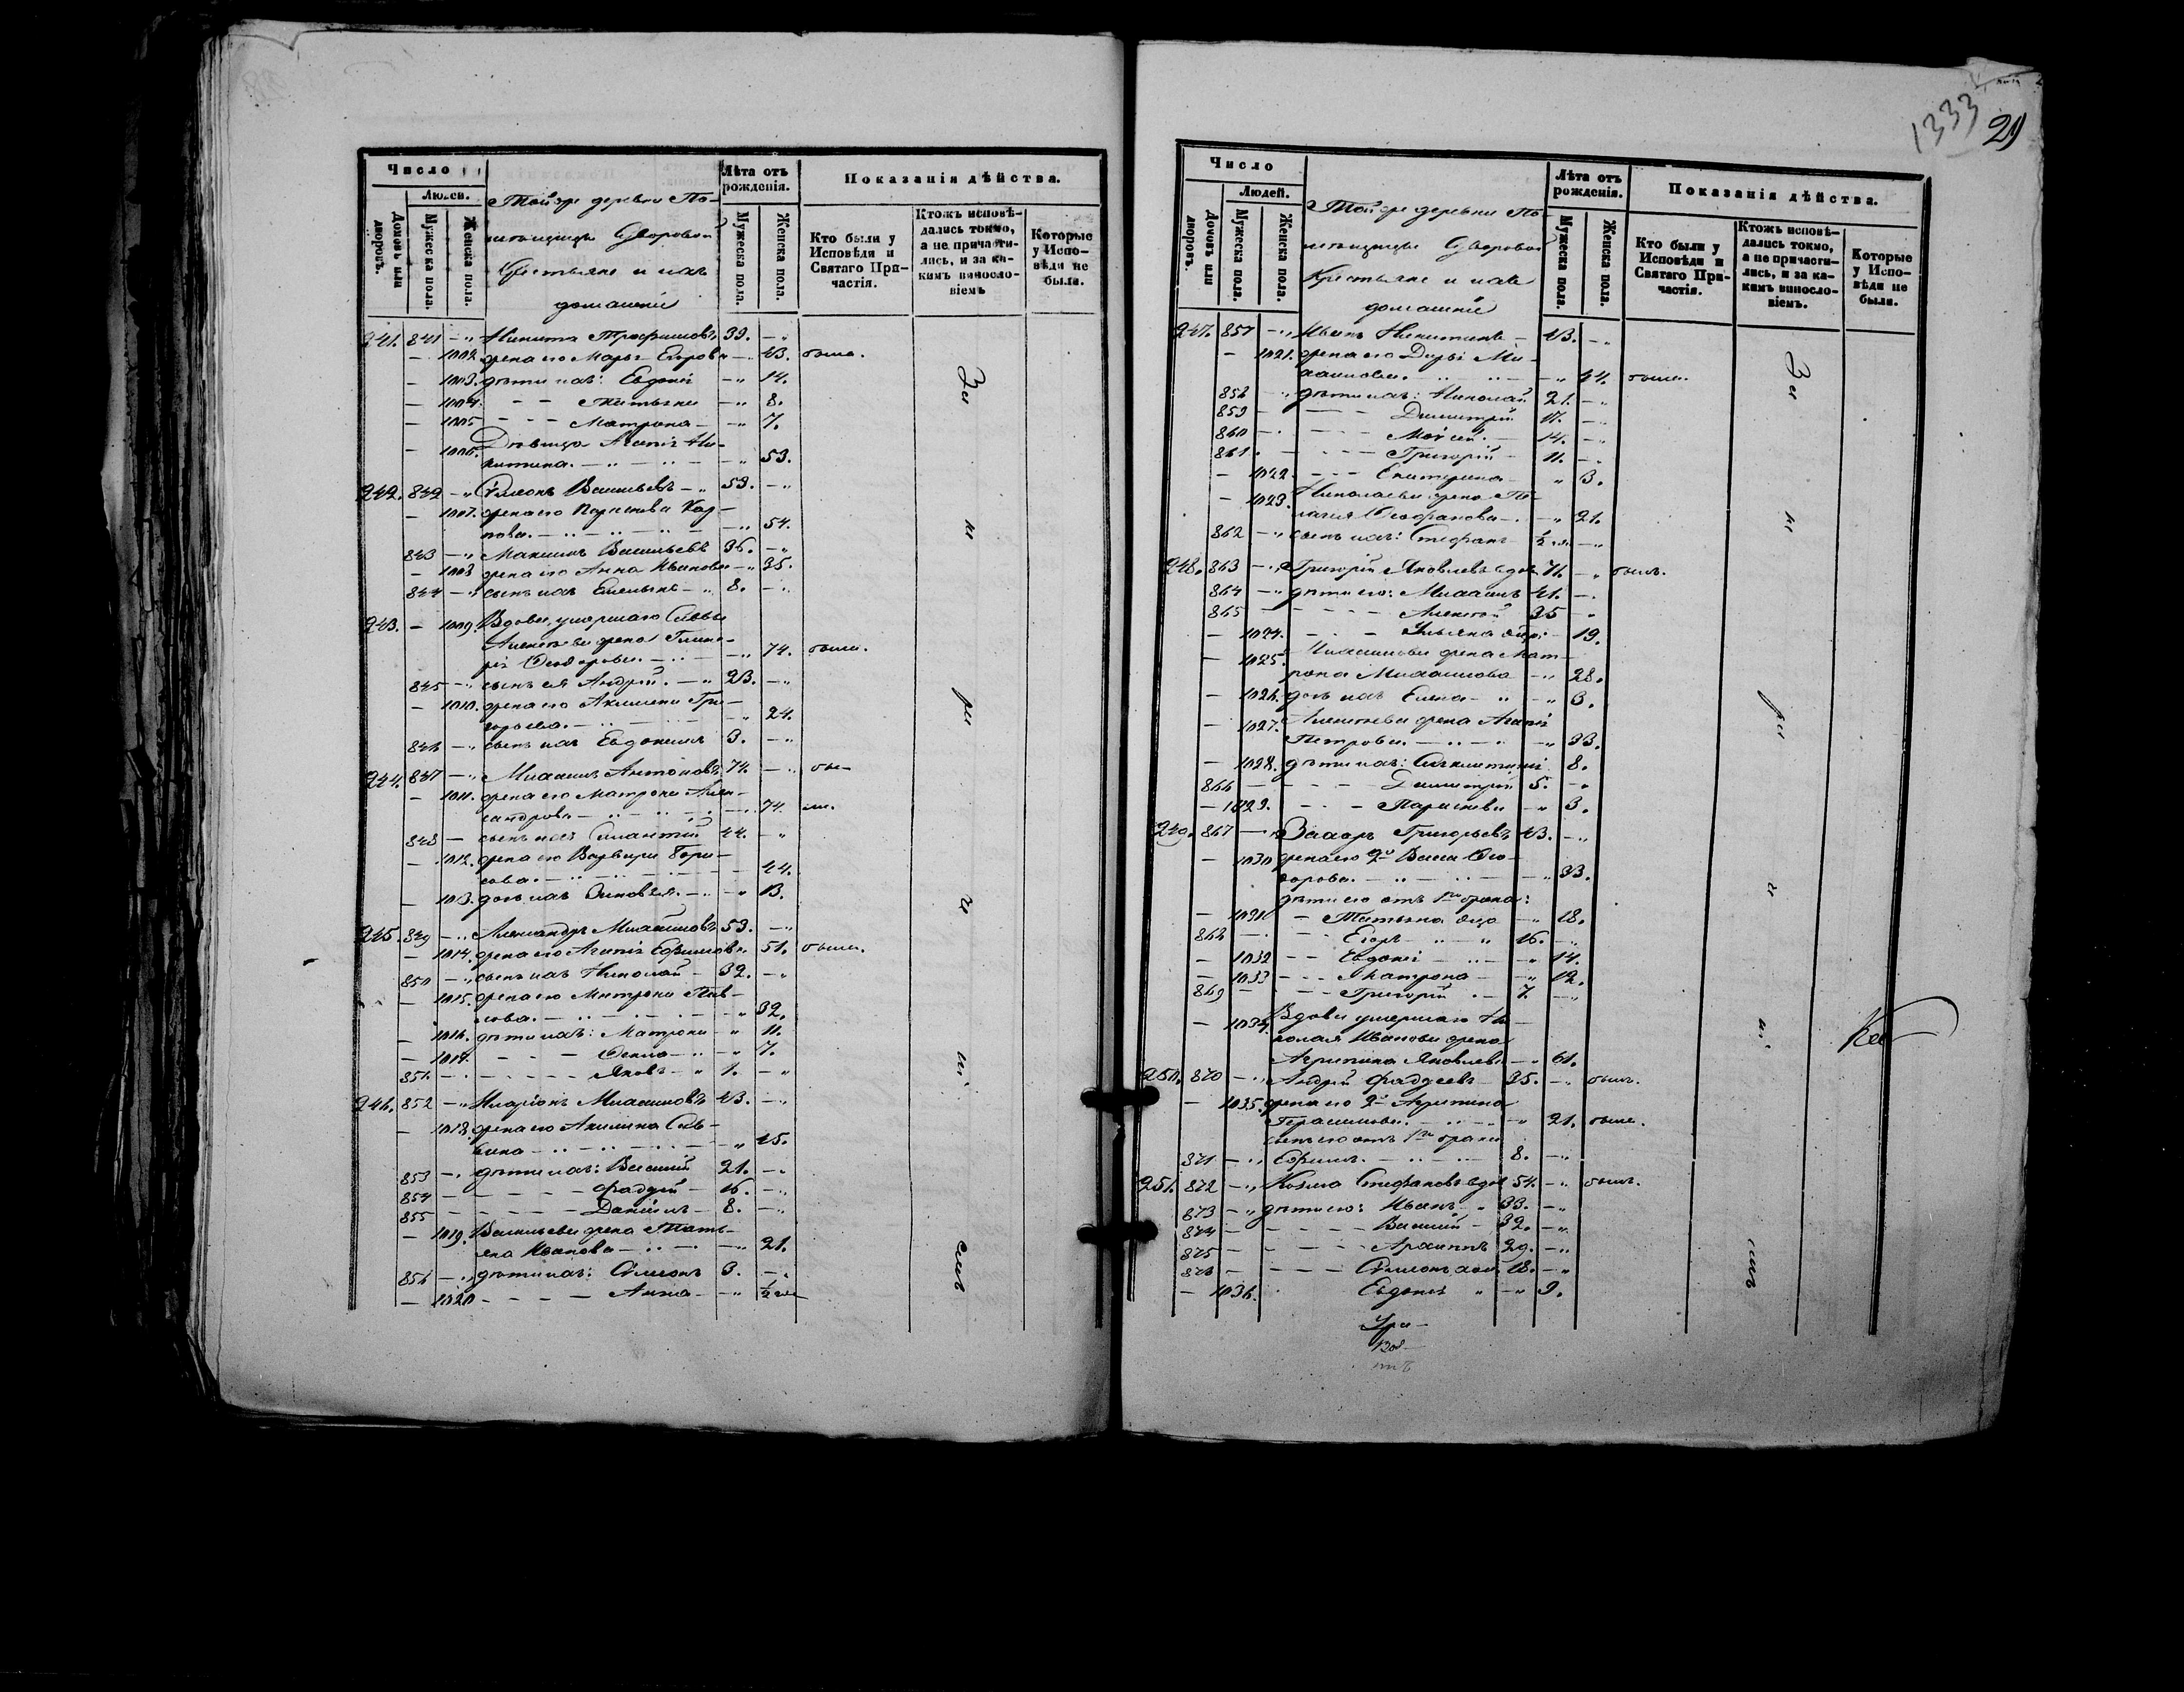 Число
Людей.
Домовъ или дворовъ.
Мужеска пола.
Женска пола.
Тойже деревни По-
мѣщицы Суворовой
Крестьяне и ихъ
домашніе
Лѣта отъ рожденія.
Мужеска пола.
Женска пола.
Показанія дѣйства.
Кто были у Исповѣди и Святаго Причастія.
Ктожъ исповѣдались токмо, а не причастились, и за какимъ винословіемъ
Которые у Исповѣди не были.
241. 841 Никита Трофимовъ 39.
1002. жена его Марья Егорова 43. была.
1003. дѣти ихъ: Евдокія 14.
1004. Татьяна 8.
1005 Матрона 7.
1006. Дѣвица Агапія Ни-
китина. 53.
242. 842 Симеонъ Васильевъ 53.
1007. жена его Параскева Кар-
пова. 54.
843 Максимъ Васильевъ 36.
1008 жена его Анна Иванова 35.
844 сынъ ихъ Емельянъ 8.
243. 1009. Вдова, умершаго Саввы
Алексѣева жена Глике-
рія Ѳеодорова. 74. была.
845 сынъ ея Андрей. 23.
1010. жена его Акилина Гри-
горьева. 24.
846 сынъ ихъ Евдокимъ 3.
244. 847 Михаилъ Антоновъ 74. бы-
1011. жена его Матрона Алек-
сандрова 74. ли.
848 сынъ ихъ 44.
1012. жена его Варвара Бори-
сова. 44.
1013. дочь ихъ Зиновія. 13.
245. 849 Александръ Михайловъ 53.
1014. жена его Агапія Ефимова 51. была.
850 сынъ ихъ Николай 32.
1015. жена его Матрона Пав-
лова. 32.
1016. дѣти ихъ: Матрона 11.
1017. Ѳекла 7.
851. Яковъ 1.
246. 852 Иларіонъ Михаиловъ 43.
1018. жена его Акилина Сав-
вина 45.
853 дѣти ихъ: Василій 21.
854 Фаддей 16.
855 Даніилъ 8.
1019. Васильева жена Тать-
яна Иванова 21.
856 дѣти ихъ: Симеонъ 3.
1020 Анна ½ года
За
не
ра
че
ні
емъ
1333
29
Число
Людей.
Домовъ или дворовъ.
Мужеска пола.
Женска пола.
Тойже деревни По-
мѣщицы Суворовой
Крестьяне и ихъ
домашніе
Лѣта отъ рожденія.
Мужеска пола.
Женска пола.
Показанія дѣйства.
Кто были у Исповѣди и Святаго Причастія.
Ктожъ исповѣдались токмо, а не причастились, и за какимъ винословіемъ.
Которые у Исповѣди не были.
247. 857 Иванъ Никитинъ 43.
1021. жена его Дарья Ми-
хаилова. 44. была.
858 дѣти ихъ: Николай 21.
859 Димитрій 17.
860 Моисей. 14.
861. Григорій 11.
1022. Екатерина 3.
1023. Николаева жена Пе-
лагія Ѳеофанова 21.
862 сынъ ихъ: Стефанъ ½ года
248. 863 Григорій Яковлевъ вдов 71. былъ.
864 дѣти его: Михаилъ 41.
865 Алексѣй 35
1024. Ульяна 19.
1025. Михаилова жена Мат-
рона Михаилова 28.
1026. дочь ихъ Елена 3.
1027. Алексѣева жена Агапія
Петрова. 33.
1028. дѣти ихъ: 8.
866 Димитрій 5.
1029. Параскева 3.
249. 867 Захаръ Григорьевъ 43.
1030 жена его 2я Васса Ѳео-
дорова. 33.
дѣти его отъ 1го брака:
1031 Татьяна 18.
868 Егоръ 16.
1032 Евдокія 14.
1033 Матрона 12.
869 Григорій 7.
1034. Вдова умершаго Ни-
колая Иванова жена
Агрипина Яковлева 61.
250. 870 Андрей Фаддеевъ 35. былъ.
1035. жена его 2я Агрипина
Герасимова. 21. была.
сынъ его отъ 1го брака
871 Ефимъ. 8.
251. 872 Козма Стефановъ вдов 54. былъ.
873 дѣти его: Иванъ 33.
874 Василій 32.
875 Архиппъ 29.
876 Симеонъ хол 18.
1036. Евдокія 9.
За
не
ра
че
ні
емъ